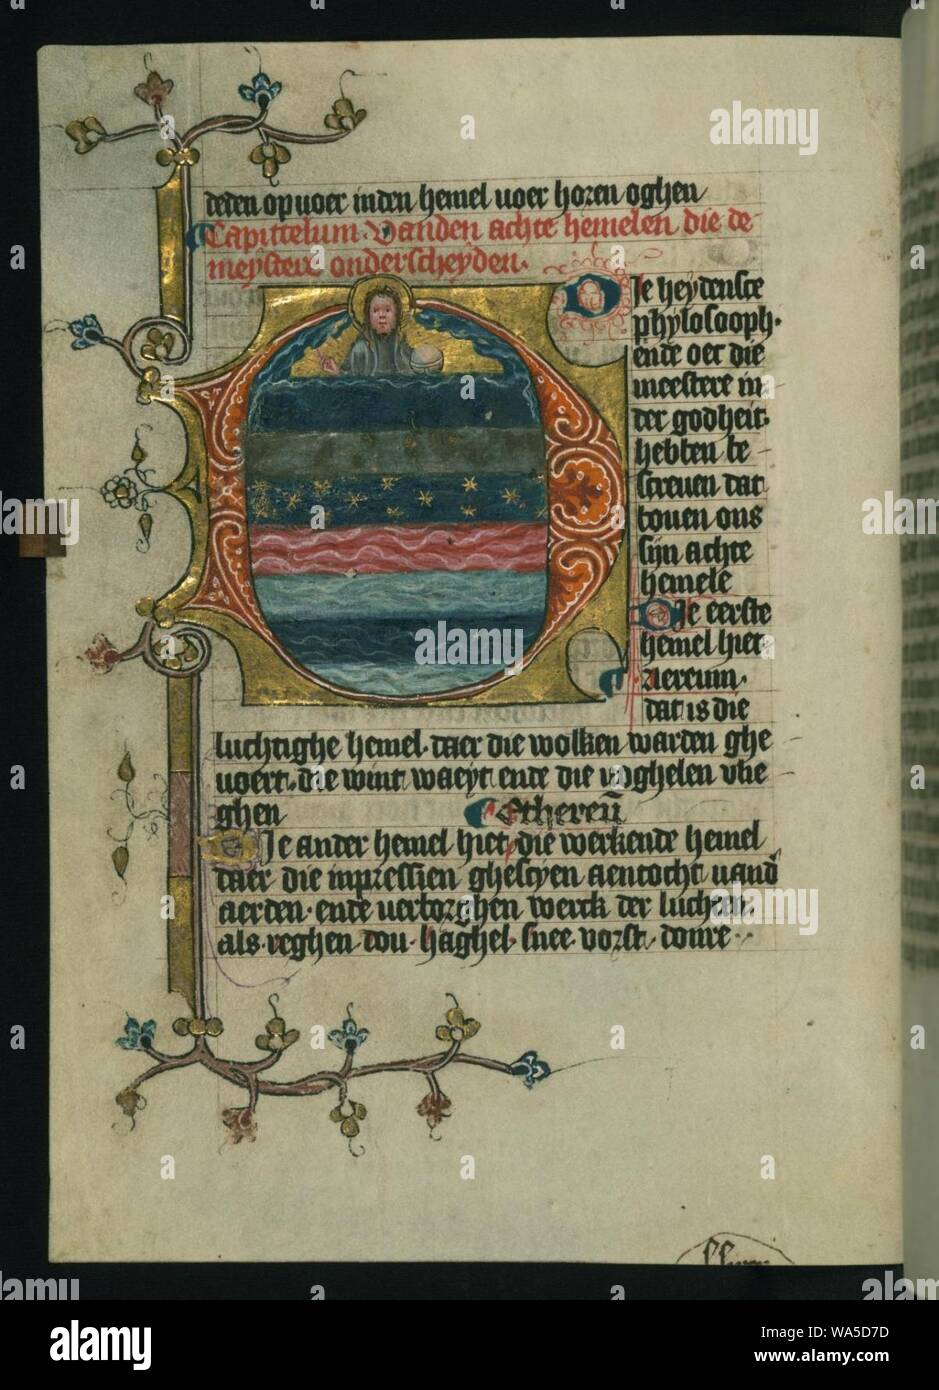 deden op voer in den hemel voer horen oghen
Capittelum. Vanden achte hemelen die de
meystere onderscheyden.
Die heydensce
phylosooph.
ende oec die
meestere in
der godheit.
hebben be
screuen dat
bouen ons
sijn achte
hemele
Die eerste
hemel hiet
aereum.
dat is die
luchtighe hemel. daer die wolken warden ghe
uoert. die wint waeyt ende die voghelen vlie
ghen
Ethereū
Die ander hemel hiet die werkende hemel
daer die inpressien ghescyen aen locht
aerden. ende verborghen werck der lucht.
als. reghen. dou. haghel. snee. vorst. donre
alamy
alamy
alamy
alamy
alamy
Image ID: WA5D7D
www.alamy.com